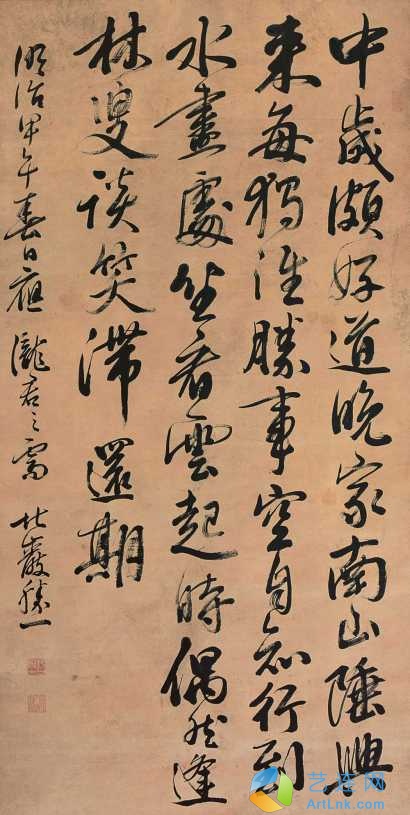 中歲頗好道晚家南山陲興
来每獨往勝事空自知行到
水盡處坐看雲起時偶然逢
林叟談笑滯還期
明治甲午春日應 瀧君之需 巖勝一
艺连网
ArtLnk.com